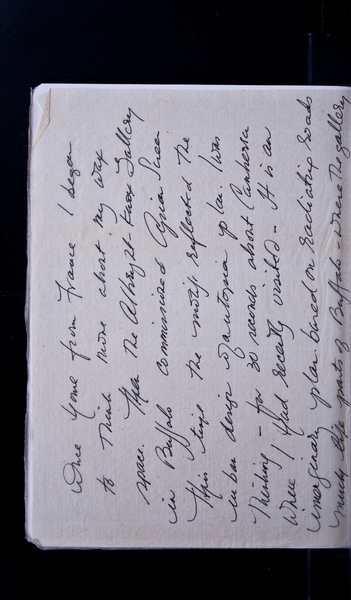 Once home from France I began
to think more about my wax
space. Then the Albright Knox Gallery
in Buffalo commissioned
this time the motif reflected the
urban design Utopian plan. I was
thinking - for 30 seconds about Canberra
where I had recently visited - It is an
imaginary plan based on radiating roads
much like parts of Buffalo where the gallery